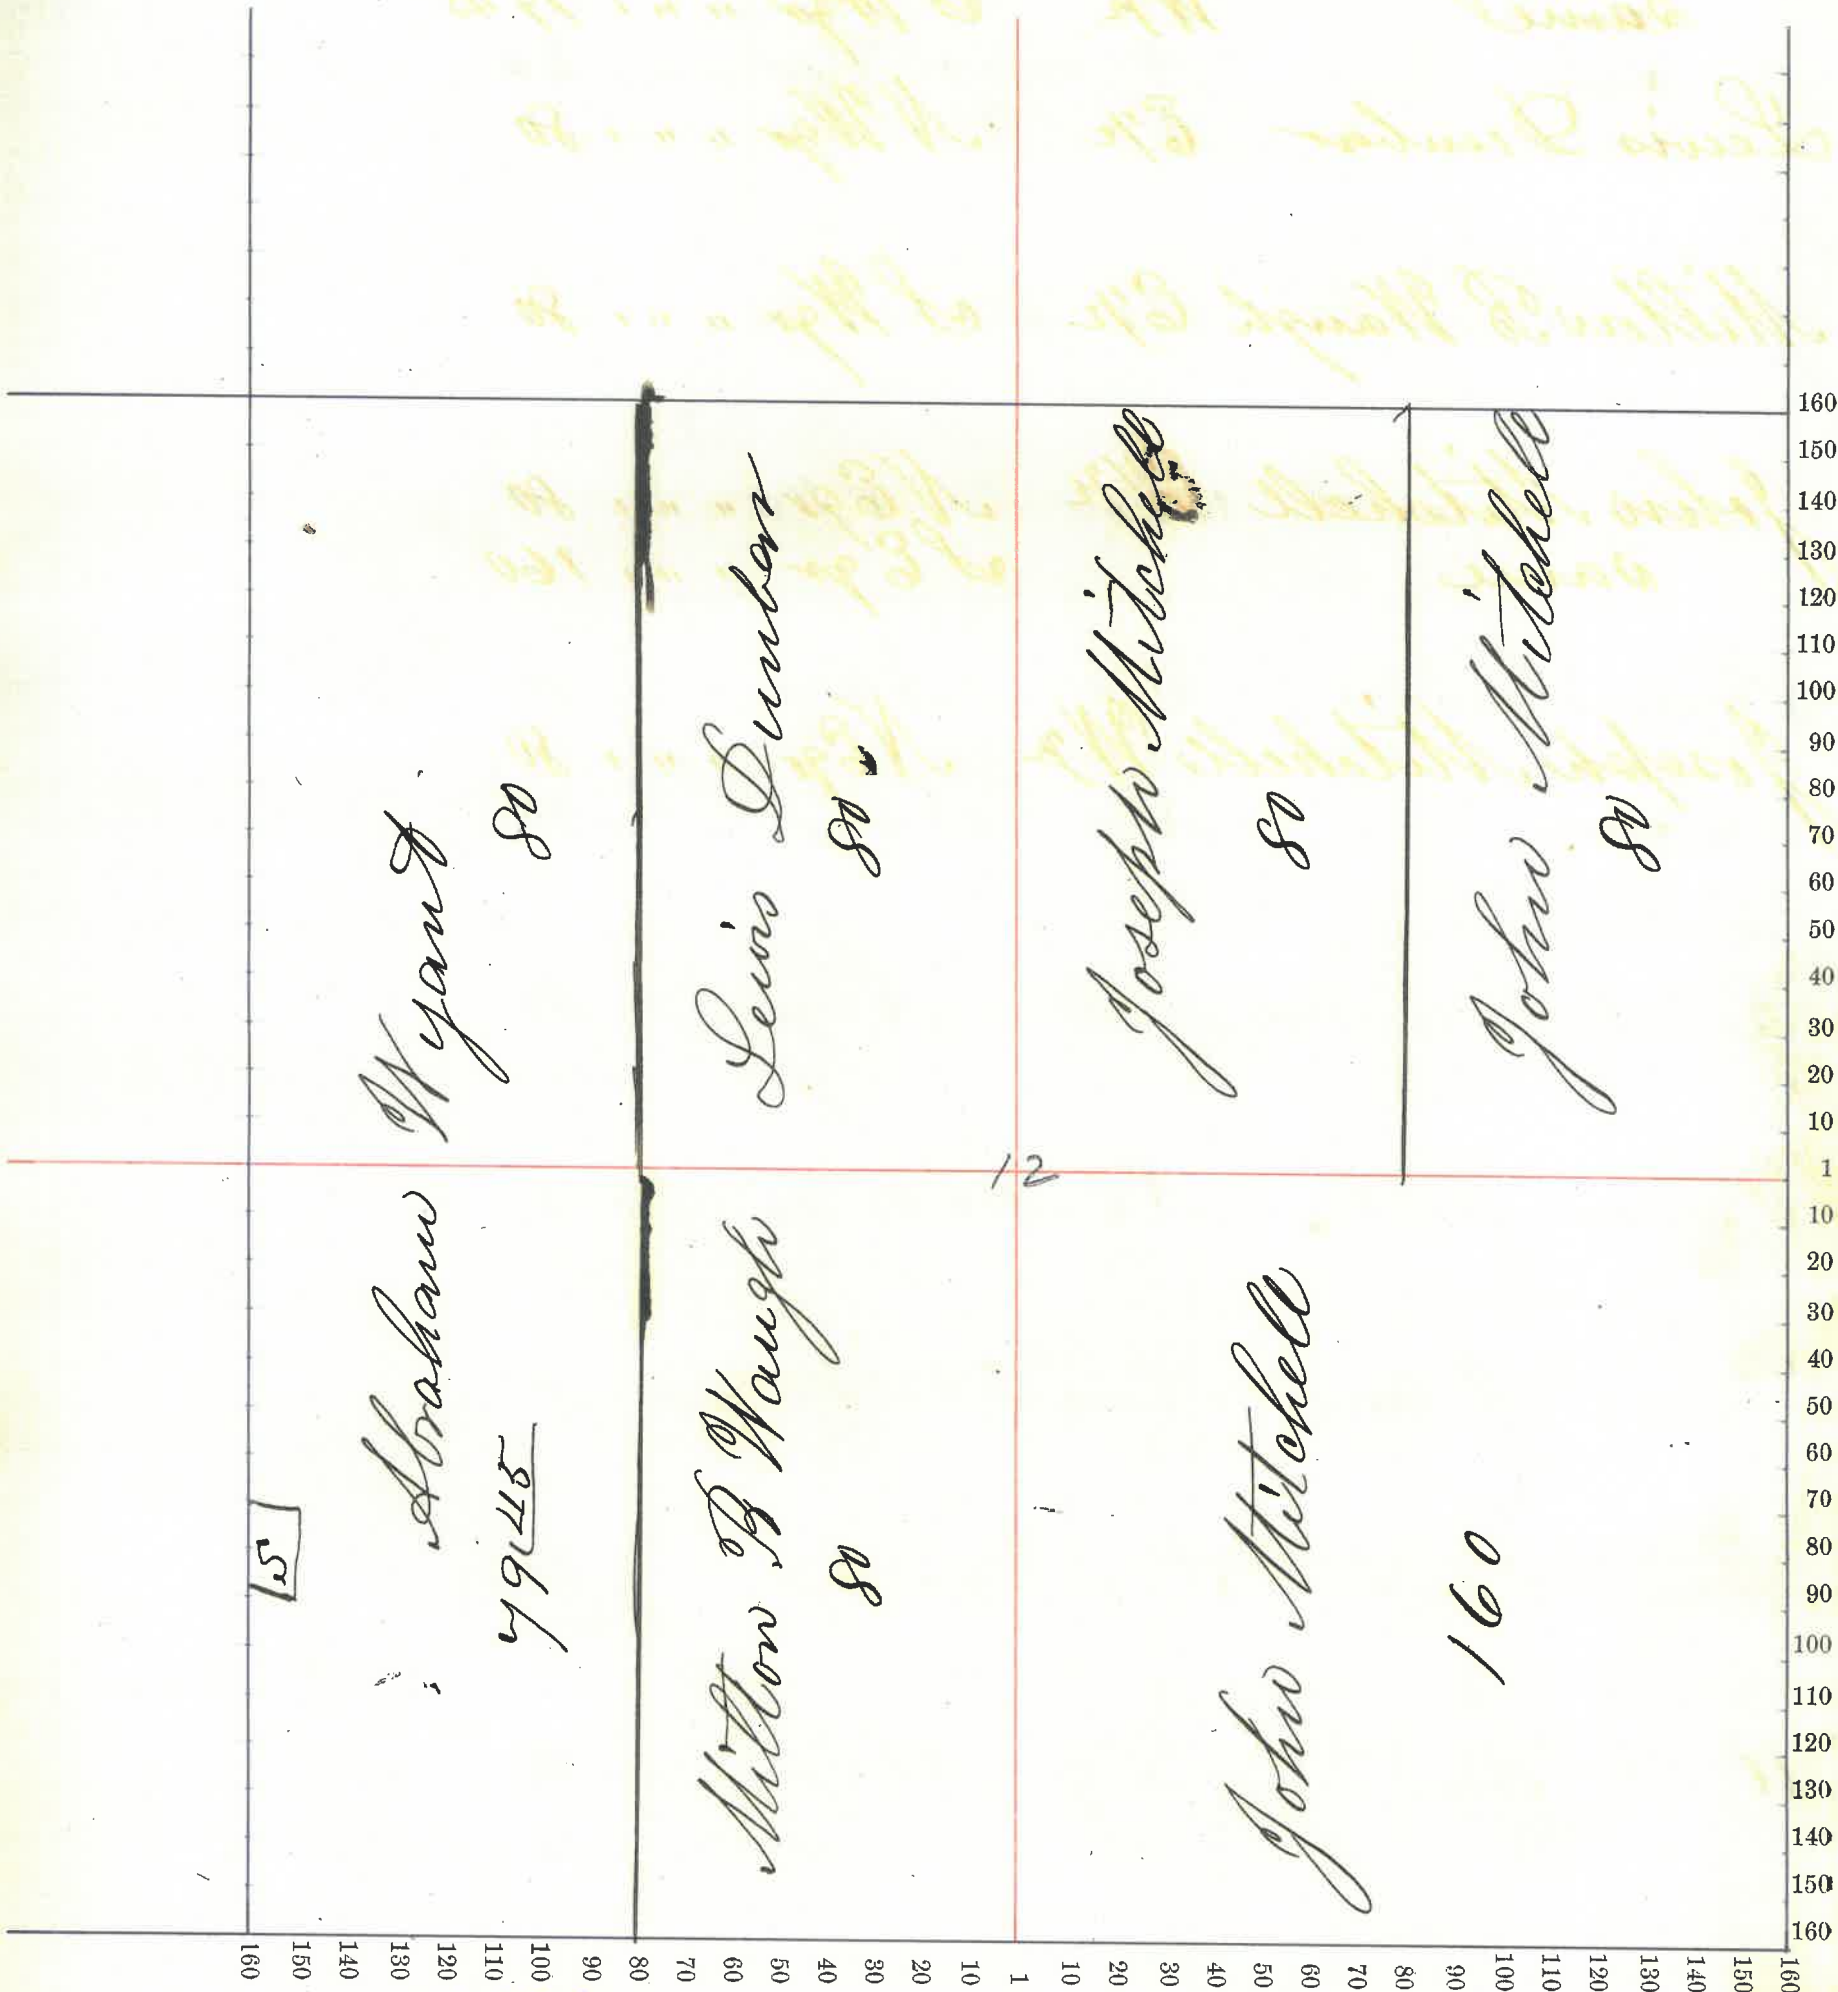 Abraham Wyant
79 45
80
15
Lewis Dunbar
80
Milton B Waugh
80
12
Joseph Mitchell
80
John Mitchell
80
John Mitchell
160
160
150
140
130
120
110
100
90
80
70
60
50
40
30
20
10
1
10
20
30
40
50
60
70
80
90
100
110
120
130
140
150
160
160
150
140
130
120
110
100
90
80
70
60
50
40
30
20
10
1
10
20
30
40
50
60
70
80
90
100
110
120
130
140
150
160